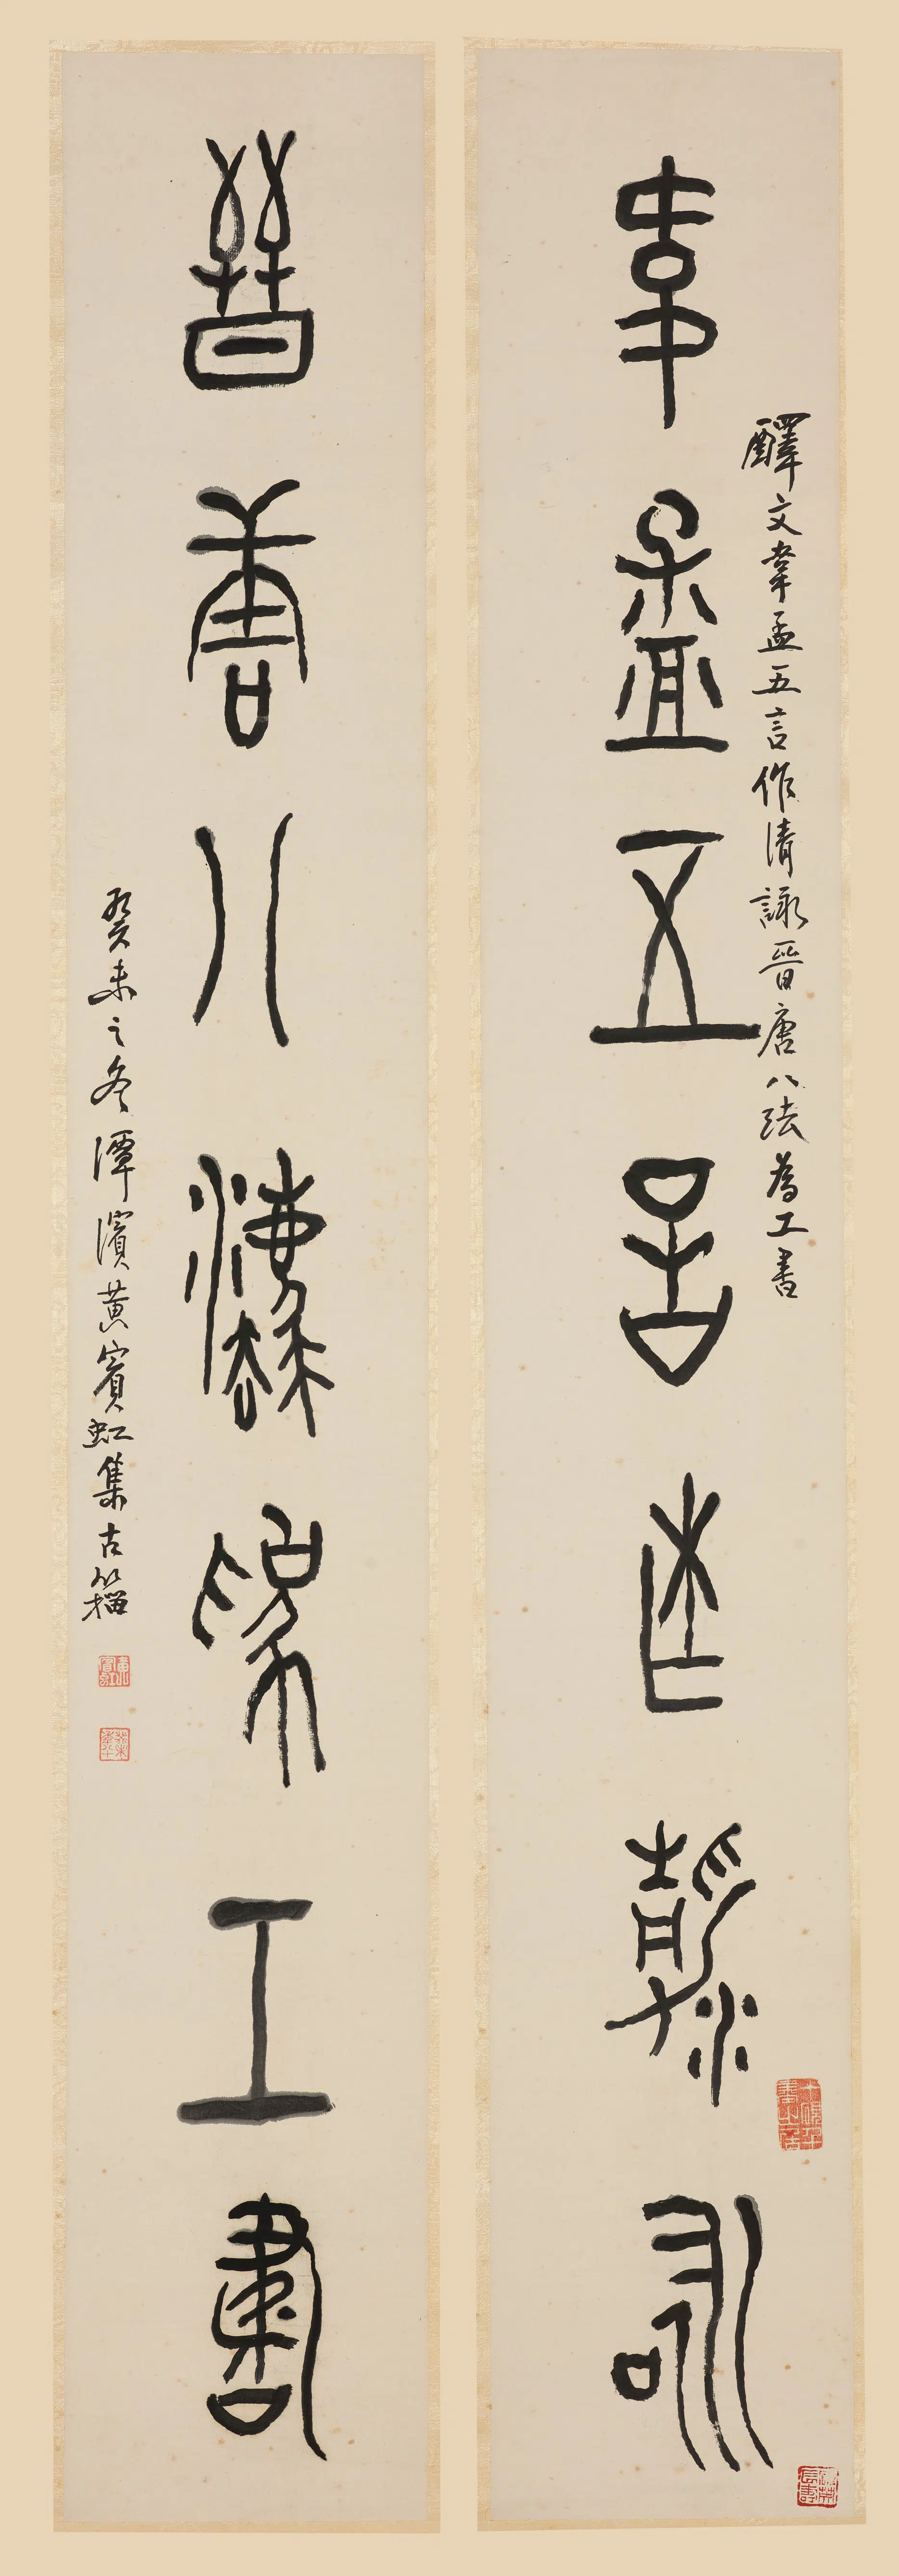 韋孟五言作清詠
釋文韋孟五言作清詠晉唐八法為工書
晉唐八法為工書
癸未之冬潭濱黃賓虹集古籀
黃賓虹